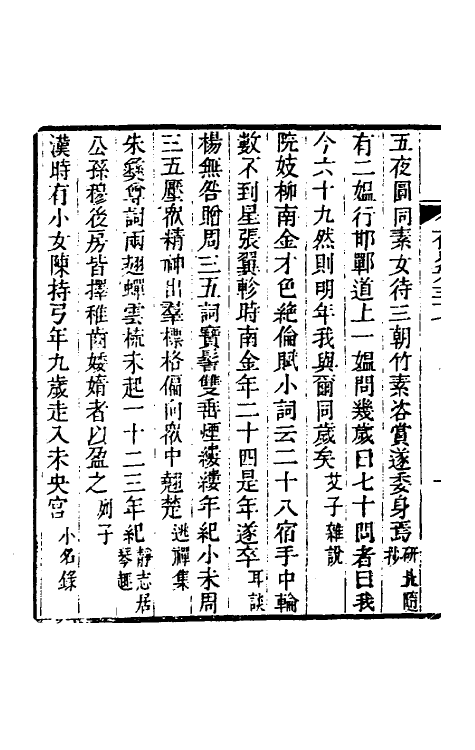 五夜圖同素女待三朝竹素咨賞遂委身焉研北隨抄
有二媼行邯鄲道上一媼問幾歲曰七十問者曰我
今六十九然則明年我與爾同歲矣艾子雜說
院妓柳南金才色絶倫賦小詞云二十八宿手中輪
數不到星張翼軫時南金年二十四是年遂卒耳談
楊無咎贈周三五詞寶髻雙垂煙縷縷年紀小未周
三五壓衆精神出羣標格偏向衆中翹楚逃禪集
朱彝尊詞兩翅蟬雲梳未起一十二三年紀靜志居琴趣
公孫穆後房皆擇稚齒婑媠者以盈之列子
漢時有小女陳持弓年九歲走入未央宮小名錄